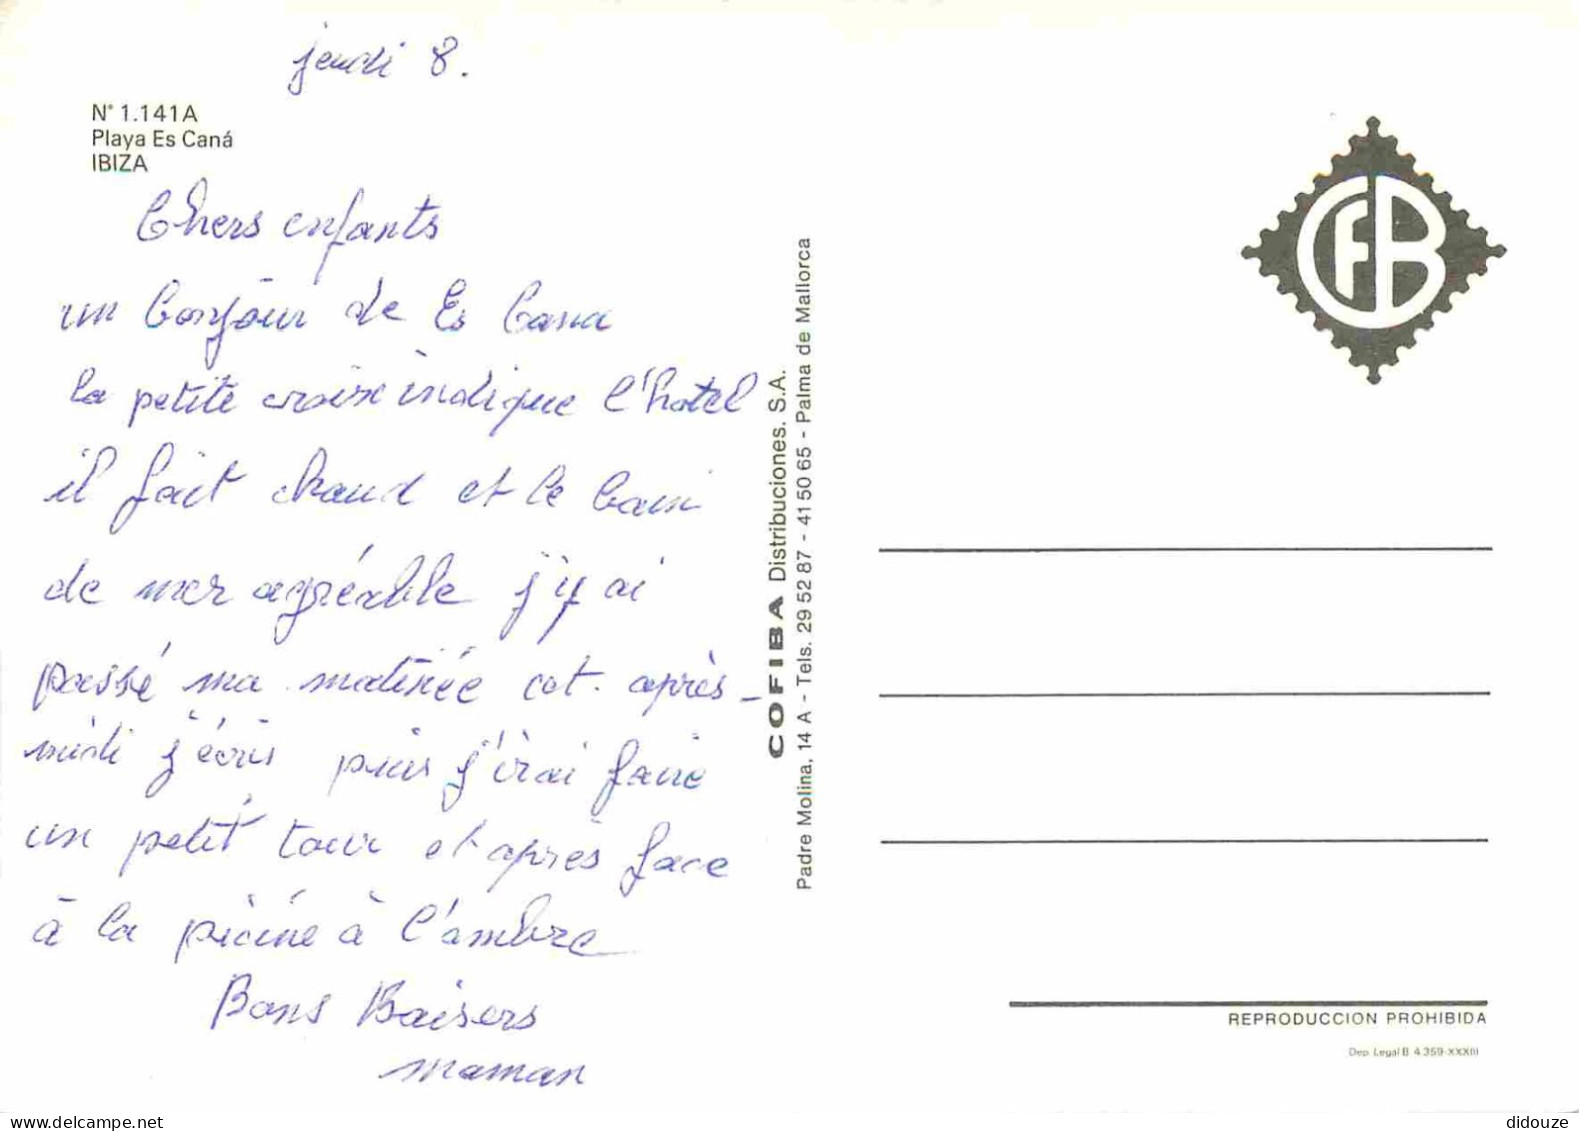 jeudi 8.
N° 1.141A
Playa Es Caná
IBIZA
Chers enfants
un bonjour de Es Cana
la petite croix indique l'hotel
il fait chaud et le bain
de mer agréable j'y ai
passé ma matinée cet après-
midi j'écris puis j'irai faire
un petit tour et après face
à la picine à l'ambre
Bons Baisers
maman
COFIBA Distribuciones. S.A.
Padre Molina, 14 A - Tels. 29 52 87 - 41 50 65 - Palma de Mallorca
CFB
REPRODUCCION PROHIBIDA
Dep. Legal B 4.359-XXXIII
didouze